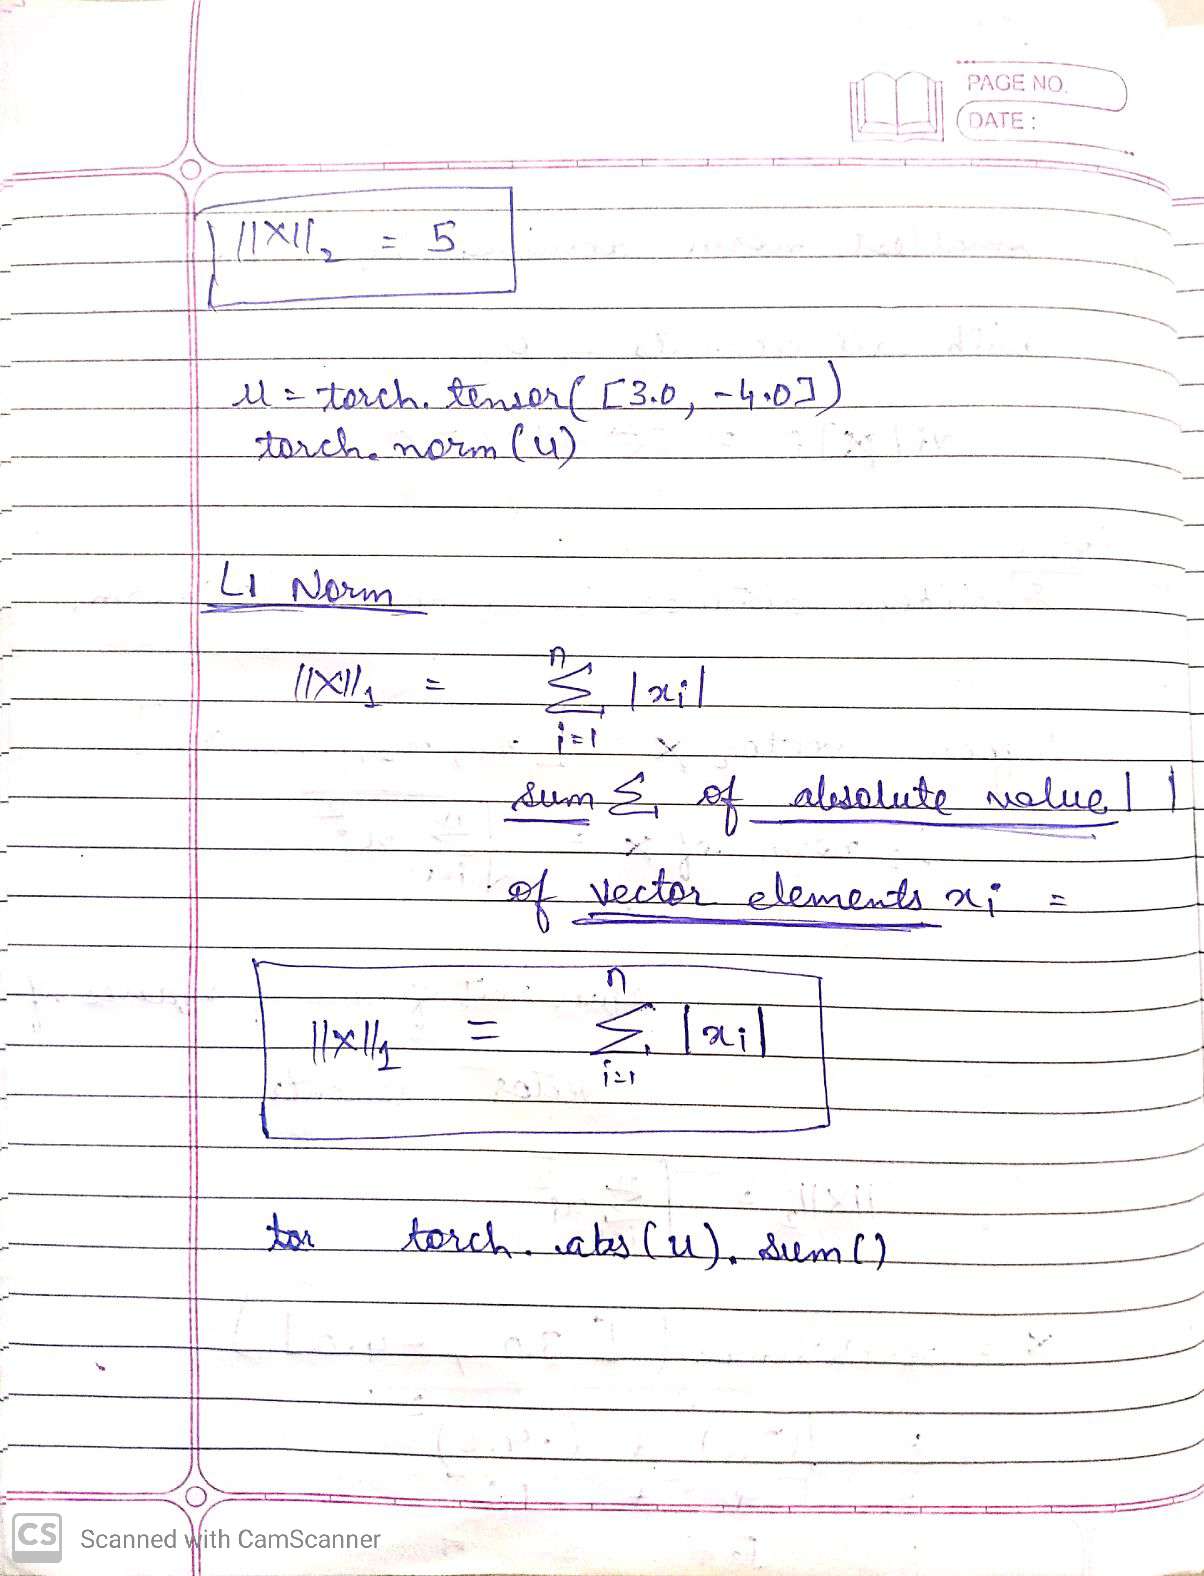 PAGE NO.
DATE :
||X||₂ = 5
u = torch.tensor([3.0, -4.0])
torch.norm(u)
L1 Norm
||X||₁ = n∑i=1 |xi|
sum ∑ of absolute value | |
of vector elements xi =
||X||₁ = n∑i=1 |xi|
tor torch.abs(u).sum()
CS Scanned with CamScanner